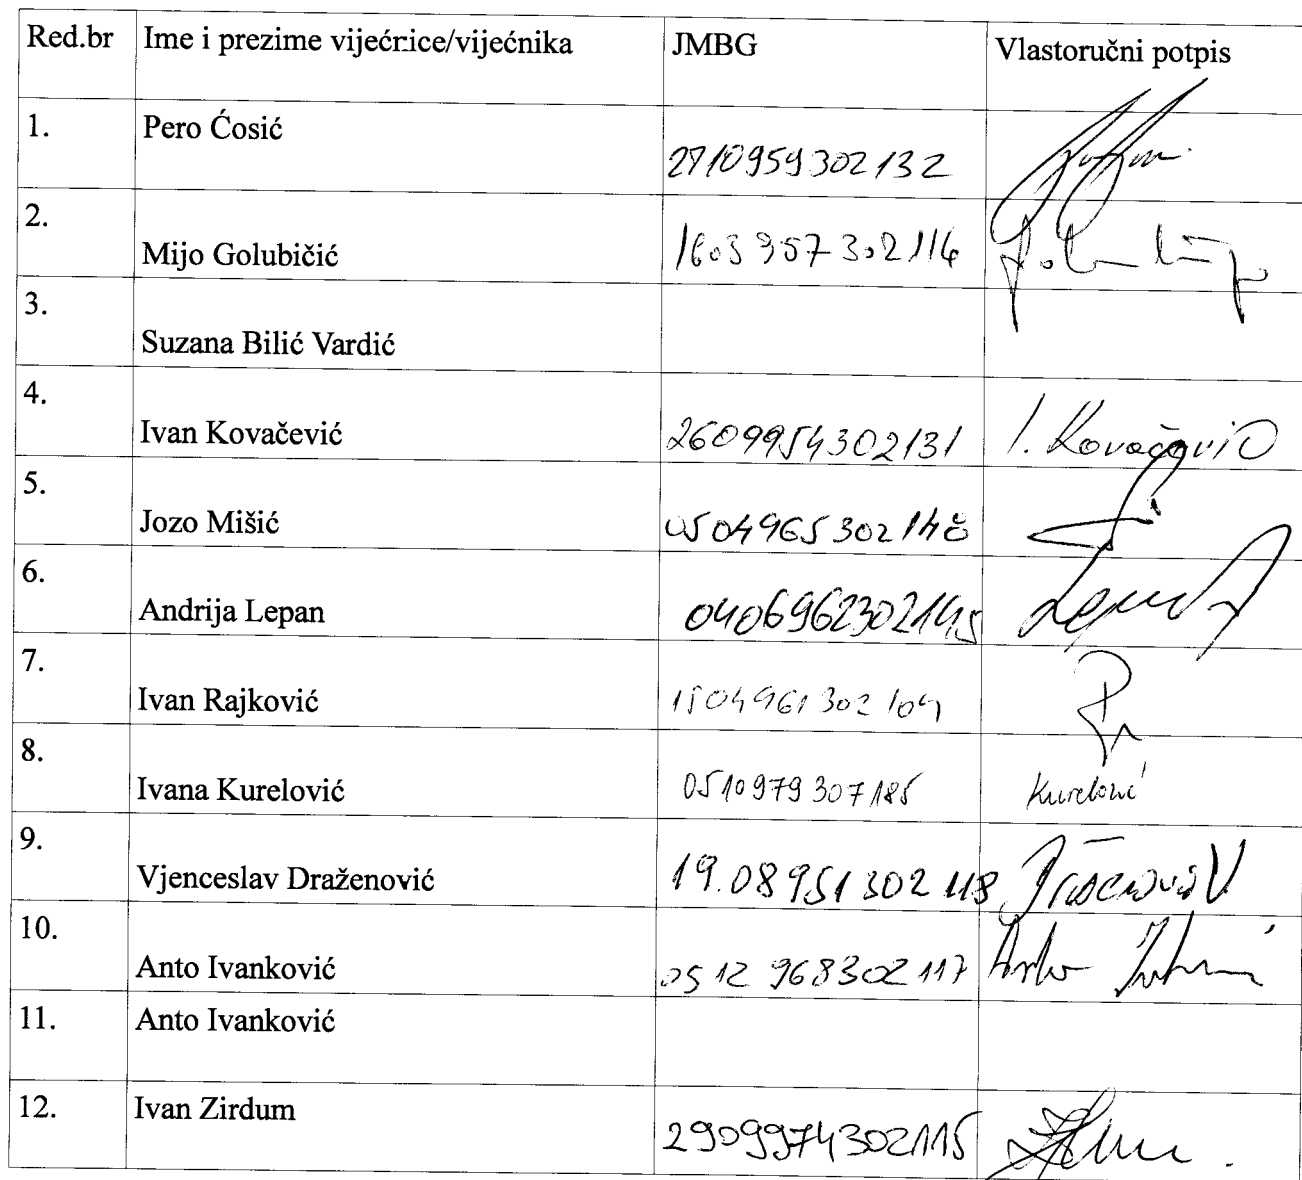 Red.br Ime i prezime vijećnice/vijećnika JMBG Vlastoručni potpis
1. Pero Ćosić 2710959302132
2. Mijo Golubičić 1603957302116
3. Suzana Bilić Vardić
4. Ivan Kovačević 2609954302131 I. Kovačević
5. Jozo Mišić 0504965302148
6. Andrija Lepan 0406962302145
7. Ivan Rajković 1504961302104
8. Ivana Kurelović 0510979307185 Kurelović
9. Vjenceslav Draženović 19.08951302118
10. Anto Ivanković 0512968302117 Anto
11. Anto Ivanković
12. Ivan Zirdum 2909974302115